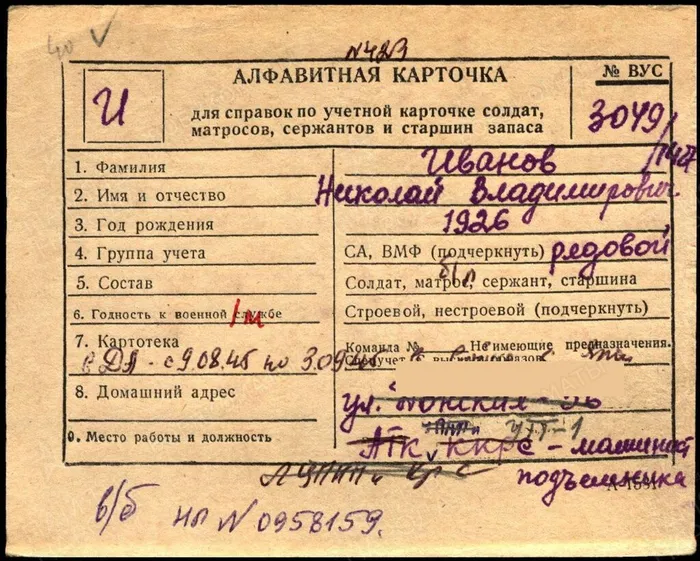 40
N423
АЛФАВИТНАЯ КАРТОЧКА
№ ВУС
И
для справок по учетной карточке солдат,
матросов, сержантов и старшин запаса
3049/
1. Фамилия Иванов
2. Имя и отчество Николай Владимирович
3. Год рождения 1926
4. Группа учета СА, ВМФ (подчеркнуть) рядовой
5. Состав Солдат, матрос, сержант, старшина
6. Годность к военной службе Строевой, нестроевой (подчеркнуть)
7. Картотека Команда № Не имеющие предназначения.
в ДА - с 9.08.45 по 3.09.45
8. Домашний адрес ул.
УТТ-1
9. Место работы и должность АТК ККРС - машинист
подъемника
А-1591
в/б НП N 0958159.